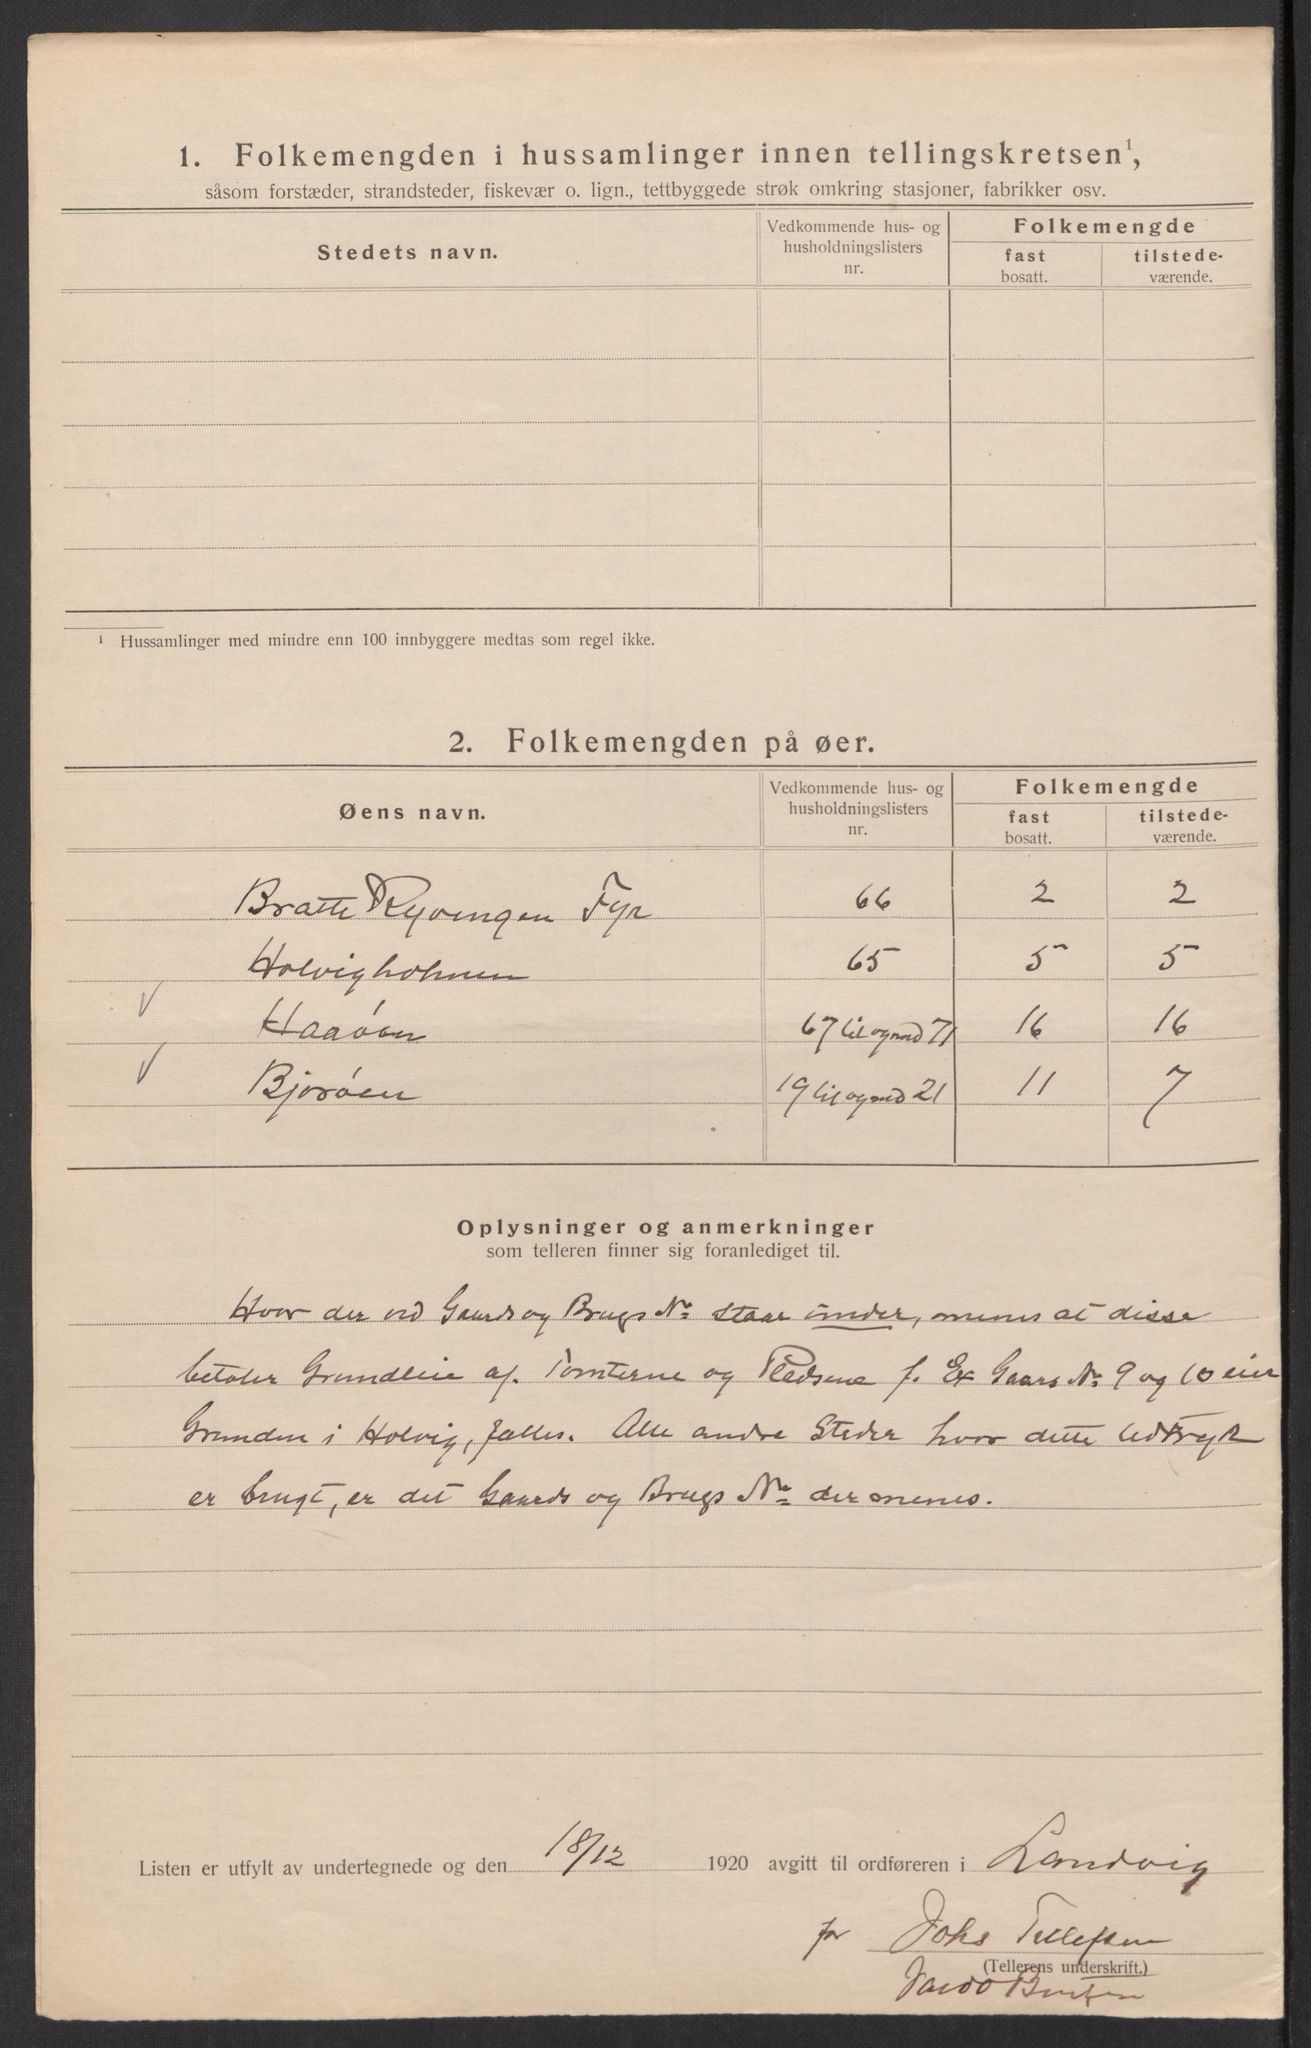 1. Folkemengden i hussamlinger innen tellingskretsen¹,
såsom forstæder, strandsteder, fiskevær o. lign., tettbyggede strøk omkring stasjoner, fabrikker osv.
Stedets navn.
Vedkommende hus- og
husholdningslisters
nr.
Folkemengde
fast
bosatt.
tilstede-
værende.
¹ Hussamlinger med mindre enn 100 innbyggere medtas som regel ikke.
2. Folkemengden på øer.
Øens navn.
Vedkommende hus- og
husholdningslisters
nr.
Folkemengde
fast
bosatt.
tilstede-
værende.
Bratte Ryvingen Fyr 66 2 2
Holvigholmen 65 5 5
Haaøen 67 til og med 71 16 16
Bjorøen 19 til og med 21 11 7
Oplysninger og anmerkninger
som telleren finner sig foranlediget til.
Hvor der ved Gaards og Brugs No staar under, menes at disse
betaler Grundleie af Tomterne og Pladsene f. Ex Gaards No 9 og 10 eier
Grunden i Holvig, fælles. Alle andre Steder hvor dette Udtryk
er brugt, er det Gaards og Brugs No der menes.
Listen er utfylt av undertegnede og den 18/12 1920 avgitt til ordføreren i Landvig
for Johs Tellefsen
(Tellerens underskrift.)